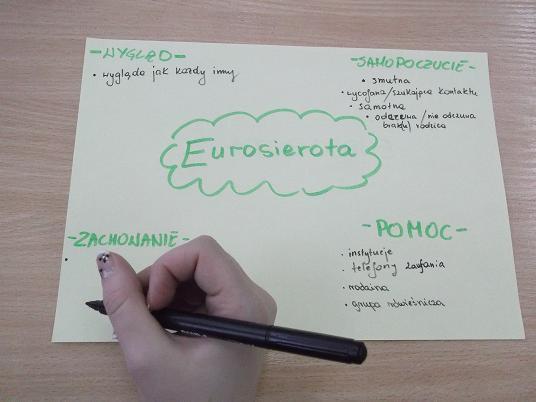 -WYGLĄD-
• wygląda jak każdy inny
-SAMOPOCZUCIE-
• smutna
• wycofana/szukająca kontaktu
• samotna
• odczuwa/nie odczuwa
braku rodzica
Eurosierota
-ZACHOWANIE-
•
-POMOC-
• instytucje
• telefony zaufania
• rodzina
• grupa rówieśnicza